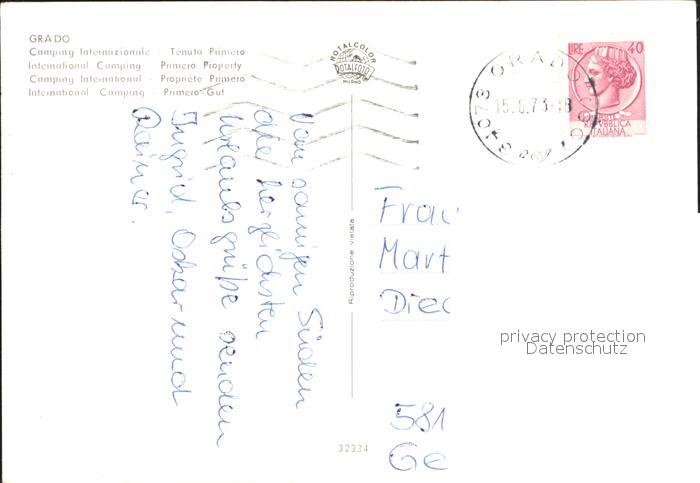 GRADO
Camping Internazionale - Tenuta Primero
International Camping - Primero Property
Camping International - Propriété Primero
International Camping - Primero-Gut
ROTALCOLOR
ROTALFOTO
MILANO
GRADO
15.6.73-18
LIRE 40
REPUBBLICA
ITALIANA
Vom sonnigen Süden
die herzlichsten
Urlaubsgrüße senden
Ingrid, Oskar und
Rainer.
Riproduzione vietata
Frau
Mart
Died
581
Ge
32334
privacy protection
Datenschutz